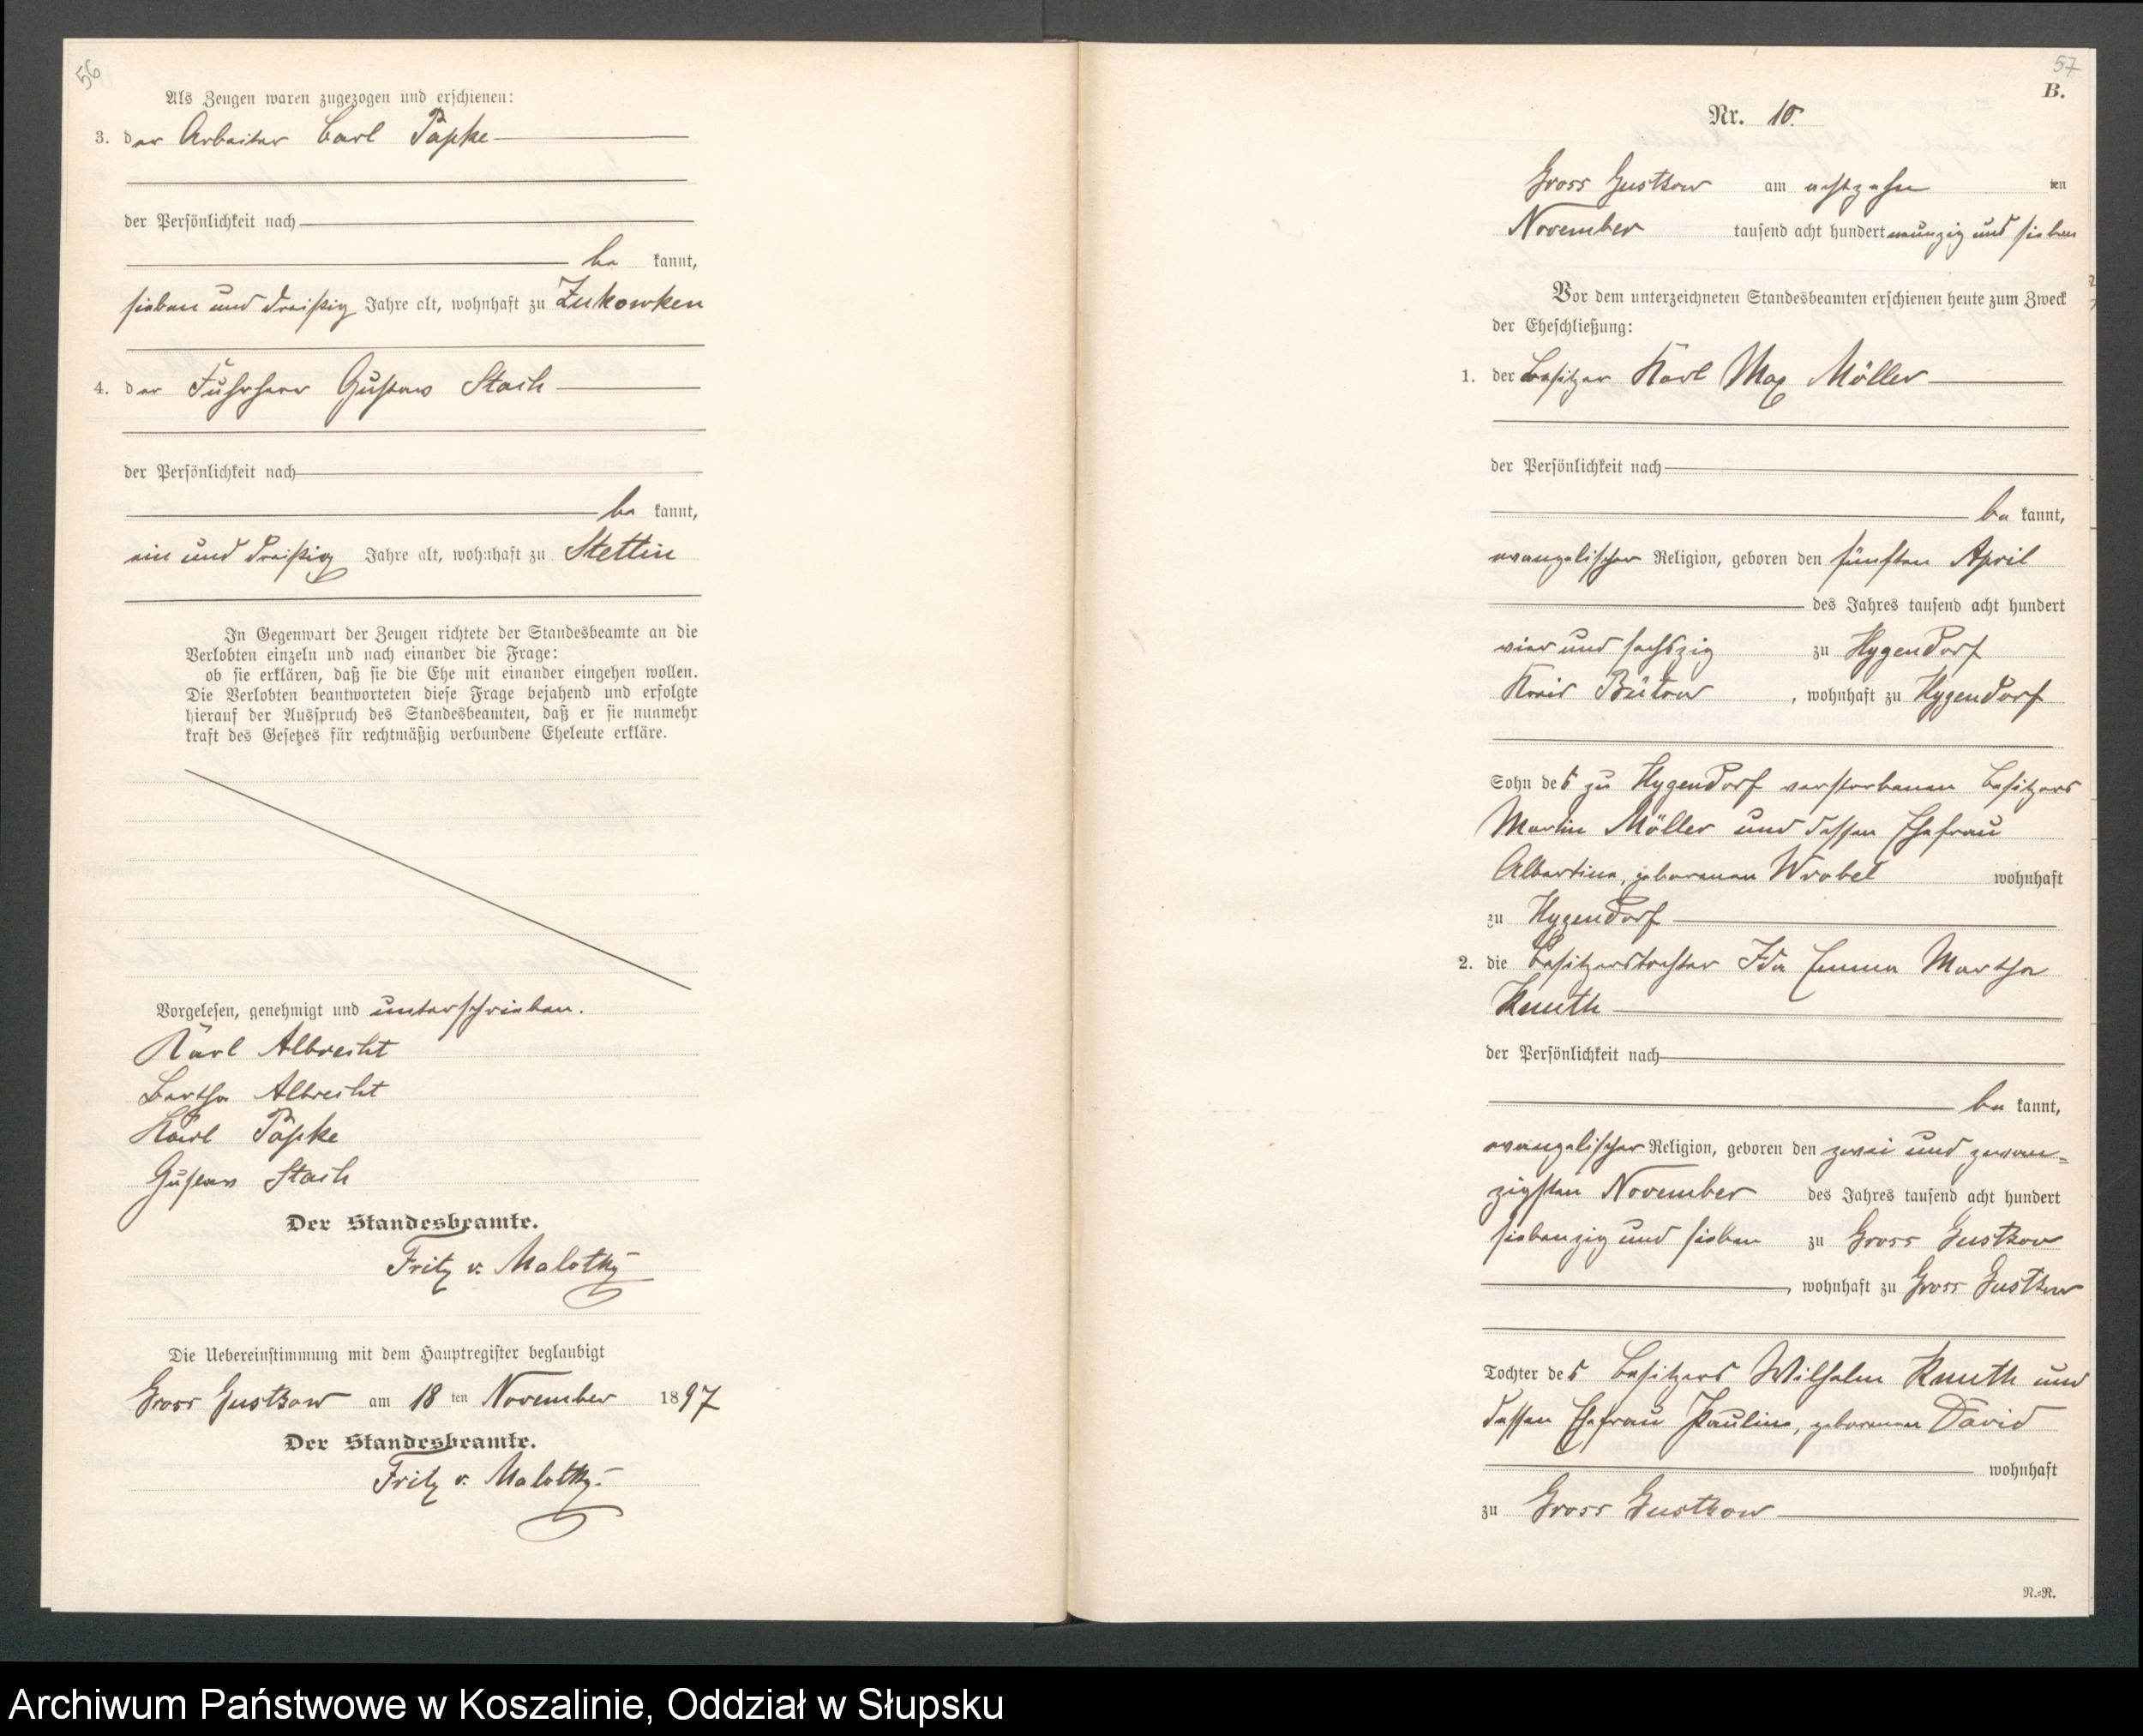 56
Als Zeugen waren zugezogen und erschienen:
3. der Arbeiter Carl Papke
der Persönlichkeit nach
be kannt,
sieben und dreißig Jahre alt, wohnhaft zu Zukowken
4. der Fuhrherr Gustav Stach
der Persönlichkeit nach
be kannt,
ein und dreißig Jahre alt, wohnhaft zu Stettin
In Gegenwart der Zeugen richtete der Standesbeamte an die
Verlobten einzeln und nach einander die Frage:
ob sie erklären, daß sie die Ehe mit einander eingehen wollen.
Die Verlobten beantworteten diese Frage bejahend und erfolgte
hierauf der Ausspruch des Standesbeamten, daß er sie nunmehr
kraft des Gesetzes für rechtmäßig verbundene Eheleute erkläre.
Vorgelesen, genehmigt und unterschrieben.
Karl Albrecht
Bertha Albrecht
Karl Papke
Gustav Stach
Der Standesbeamte.
Fritz v. Malotky
Die Uebereinstimmung mit dem Hauptregister beglaubigt
Gross Gustkow am 18 ten November 1897
Der Standesbeamte.
Fritz v. Malotky.
57
B.
Nr. 10.
Gross Gustkow am achtzehn ten
November tausend acht hundert neunzig und sieben
Vor dem unterzeichneten Standesbeamten erschienen heute zum Zweck
der Eheschließung:
1. der Besitzer Karl Max Möller
der Persönlichkeit nach
be kannt,
evangelischer Religion, geboren den fünften April
des Jahres tausend acht hundert
vier und sechszig zu Hygendorf
Kreis Bütow, wohnhaft zu Hygendorf
Sohn des zu Hygendorf verstorbenen Besitzers
Martin Möller und dessen Ehefrau
Albertine, geborenen Wrobel wohnhaft
zu Hygendorf
2. die Besitzerstochter Ida Emma Martha
Knuth
der Persönlichkeit nach
be kannt,
evangelischer Religion, geboren den zwei und zwan=
zigsten November des Jahres tausend acht hundert
siebenzig und sieben zu Gross Gustkow
, wohnhaft zu Gross Gustkow
Tochter des Besitzers Wilhelm Knuth und
dessen Ehefrau Pauline, geborenen David
wohnhaft
zu Gross Gustkow
N.=R.
Archiwum Państwowe w Koszalinie, Oddział w Słupsku